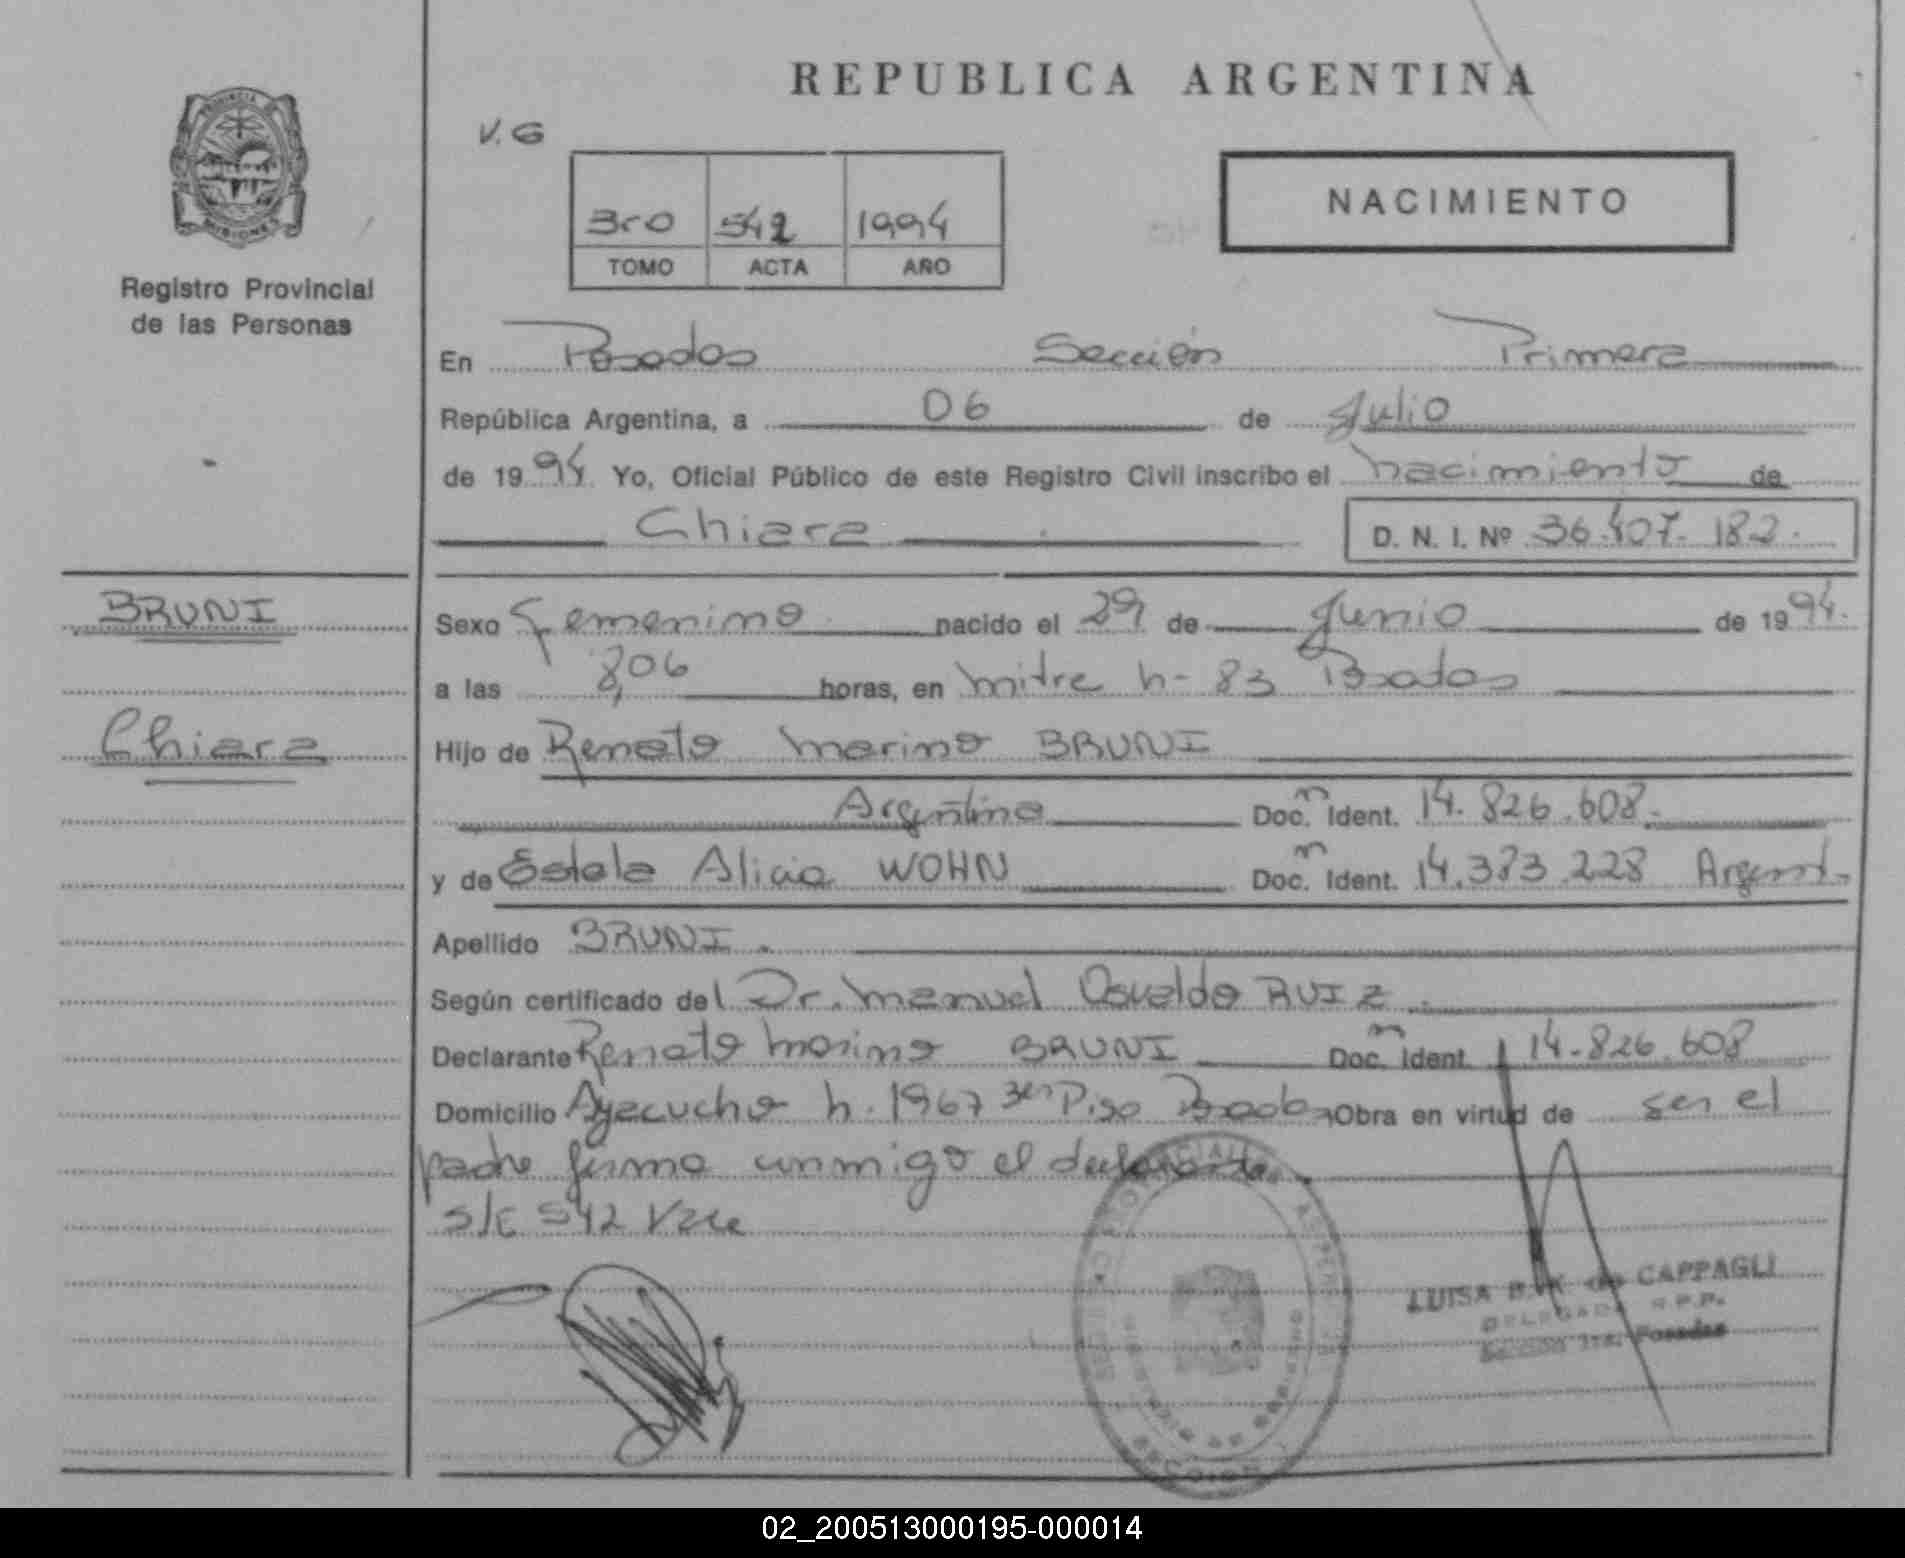 REPUBLICA ARGENTINA
V. G
3ro 542 1994
TOMO ACTA AÑO
NACIMIENTO
PROVINCIA
MISIONES
Registro Provincial
de las Personas
En Posadas Sección Primera
República Argentina, a 06 de Julio
de 1994 Yo, Oficial Público de este Registro Civil inscribo el nacimiento de
Chiara
D. N. I. Nº 36.407.182.
BRUNI
Chiara
Sexo Femenino nacido el 29 de Junio de 1994.
a las 8,06 horas, en mitre n- 83 Posadas
Hijo de Renato Marino BRUNI
Argentino Doc. Ident. 14.826.608.
y de Estela Alicia WOHN Doc. Ident. 14.383.228 Argent.
Apellido BRUNI.
Según certificado del Dr. Manuel Osvaldo RUIZ.
Declarante Renato Marino BRUNI Doc. Ident. 14.826.608
Domicilio Ayacucho n. 1967 3er Piso Posadas Obra en virtud de ser el
padre firma conmigo el declarante.
S/E 542 Vale
LUISA B. K. de CAPPAGLI
DELEGADA R.P.P.
Sección 1ra. Posadas
SECCION
02_200513000195-000014